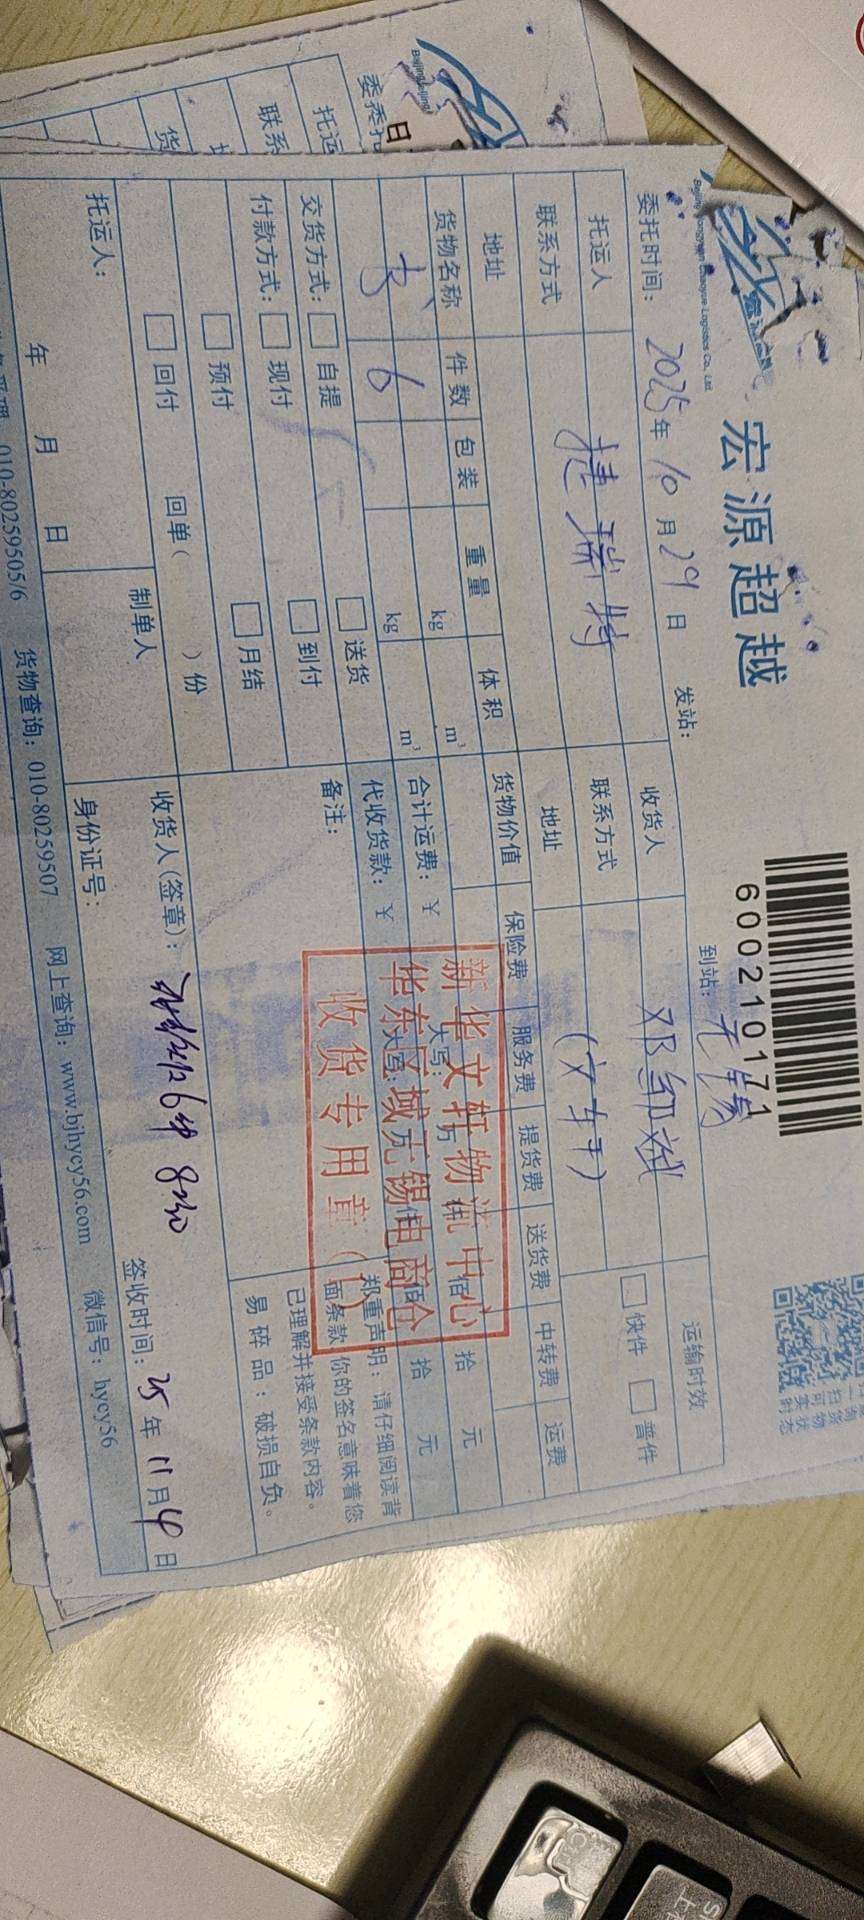 宏源超越
Beijing Hongyuan Chaoyue Logistics Co., Ltd.
6002101711
委托时间: 2025年10月29日 发站: 到站: 无锡
托运人 捷瑞特 收货人 运输时效
联系方式 联系方式 (文轩) 快件 普件
地址 地址
货物名称 件数 包装 重量 体积 货物价值 保险费 服务费 提货费 送货费 中转费 运费
书 6 kg m³
kg m³
合计运费: ¥ 大写: 万 仟 佰 拾 元
代收货款: ¥ 大写: 万 仟 佰 拾 元
交货方式: 自提 送货
备注:
付款方式: 现付 到付
预付 月结
回付 回单( )份
郑重声明: 请仔细阅读背
面条款 你的签名意味着您
已理解并接受条款内容。
易碎品: 破损自负。
新华文轩物流中心
华东区域无锡电商仓
收货专用章(1)
托运人: 年 月 日
制单人
收货人(签章): 6件 8:30
身份证号:
签收时间: 25年11月4日
010-80259505/6 货物查询: 010-80259507 网上查询: www.bjhycy56.com 微信号: hycy56
托运
联系
货
日